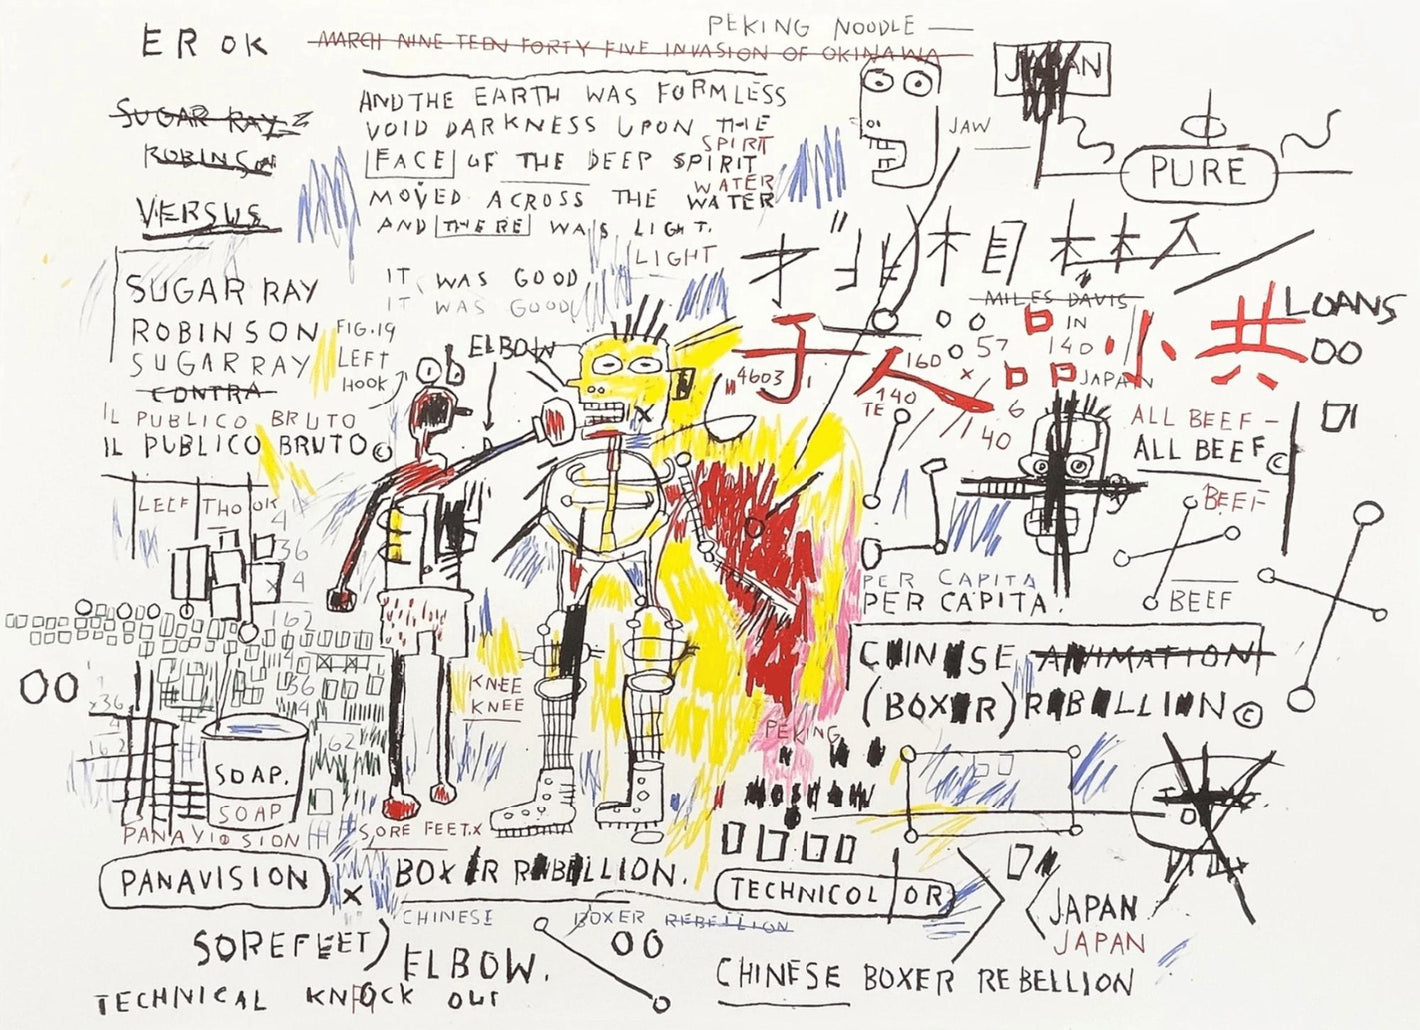 PEKING NOODLE —
EROK
MARCH NINE TEEN FORTY FIVE INVASION OF OKINAWA
JAPAN
SUGAR RAY
ROBINSON
VERSUS
AND THE EARTH WAS FORMLESS
VOID DARKNESS UPON THE
SPIRIT
FACE OF THE DEEP SPIRIT
WATER
MOVED ACROSS THE WATER
AND THERE WAS LIGHT.
LIGHT
IT WAS GOOD
IT WAS GOOD
JAW
PURE
SUGAR RAY
ROBINSON
SUGAR RAY
CONTRA
IL PUBLICO BRUTO
IL PUBLICO BRUTO©
FIG.19
LEFT
HOOK
ELBOW
MILES DAVIS
IN
57
140
JAPAN
160
4603
140
TE
6
40
子人品小共
LOANS
00
ALL BEEF –
ALL BEEF©
BEEF
BEEF
PER CAPITA
PER CAPITA.
36
4
162
36
4
x36
162
62
00
KNEE
KNEE
SOAP.
SOAP
PANAVISION
PANAVISION
SORE FEET.X
X
BOXER REBELLION.
CHINESE BOXER REBELLION
00
SOREFEET)
ELBOW.
TECHNICAL KNOCK OUT
CHINESE ANIMATION
(BOXER) REBELLION©
PEKING
TECHNICOLOR
JAPAN
JAPAN
CHINESE BOXER REBELLION